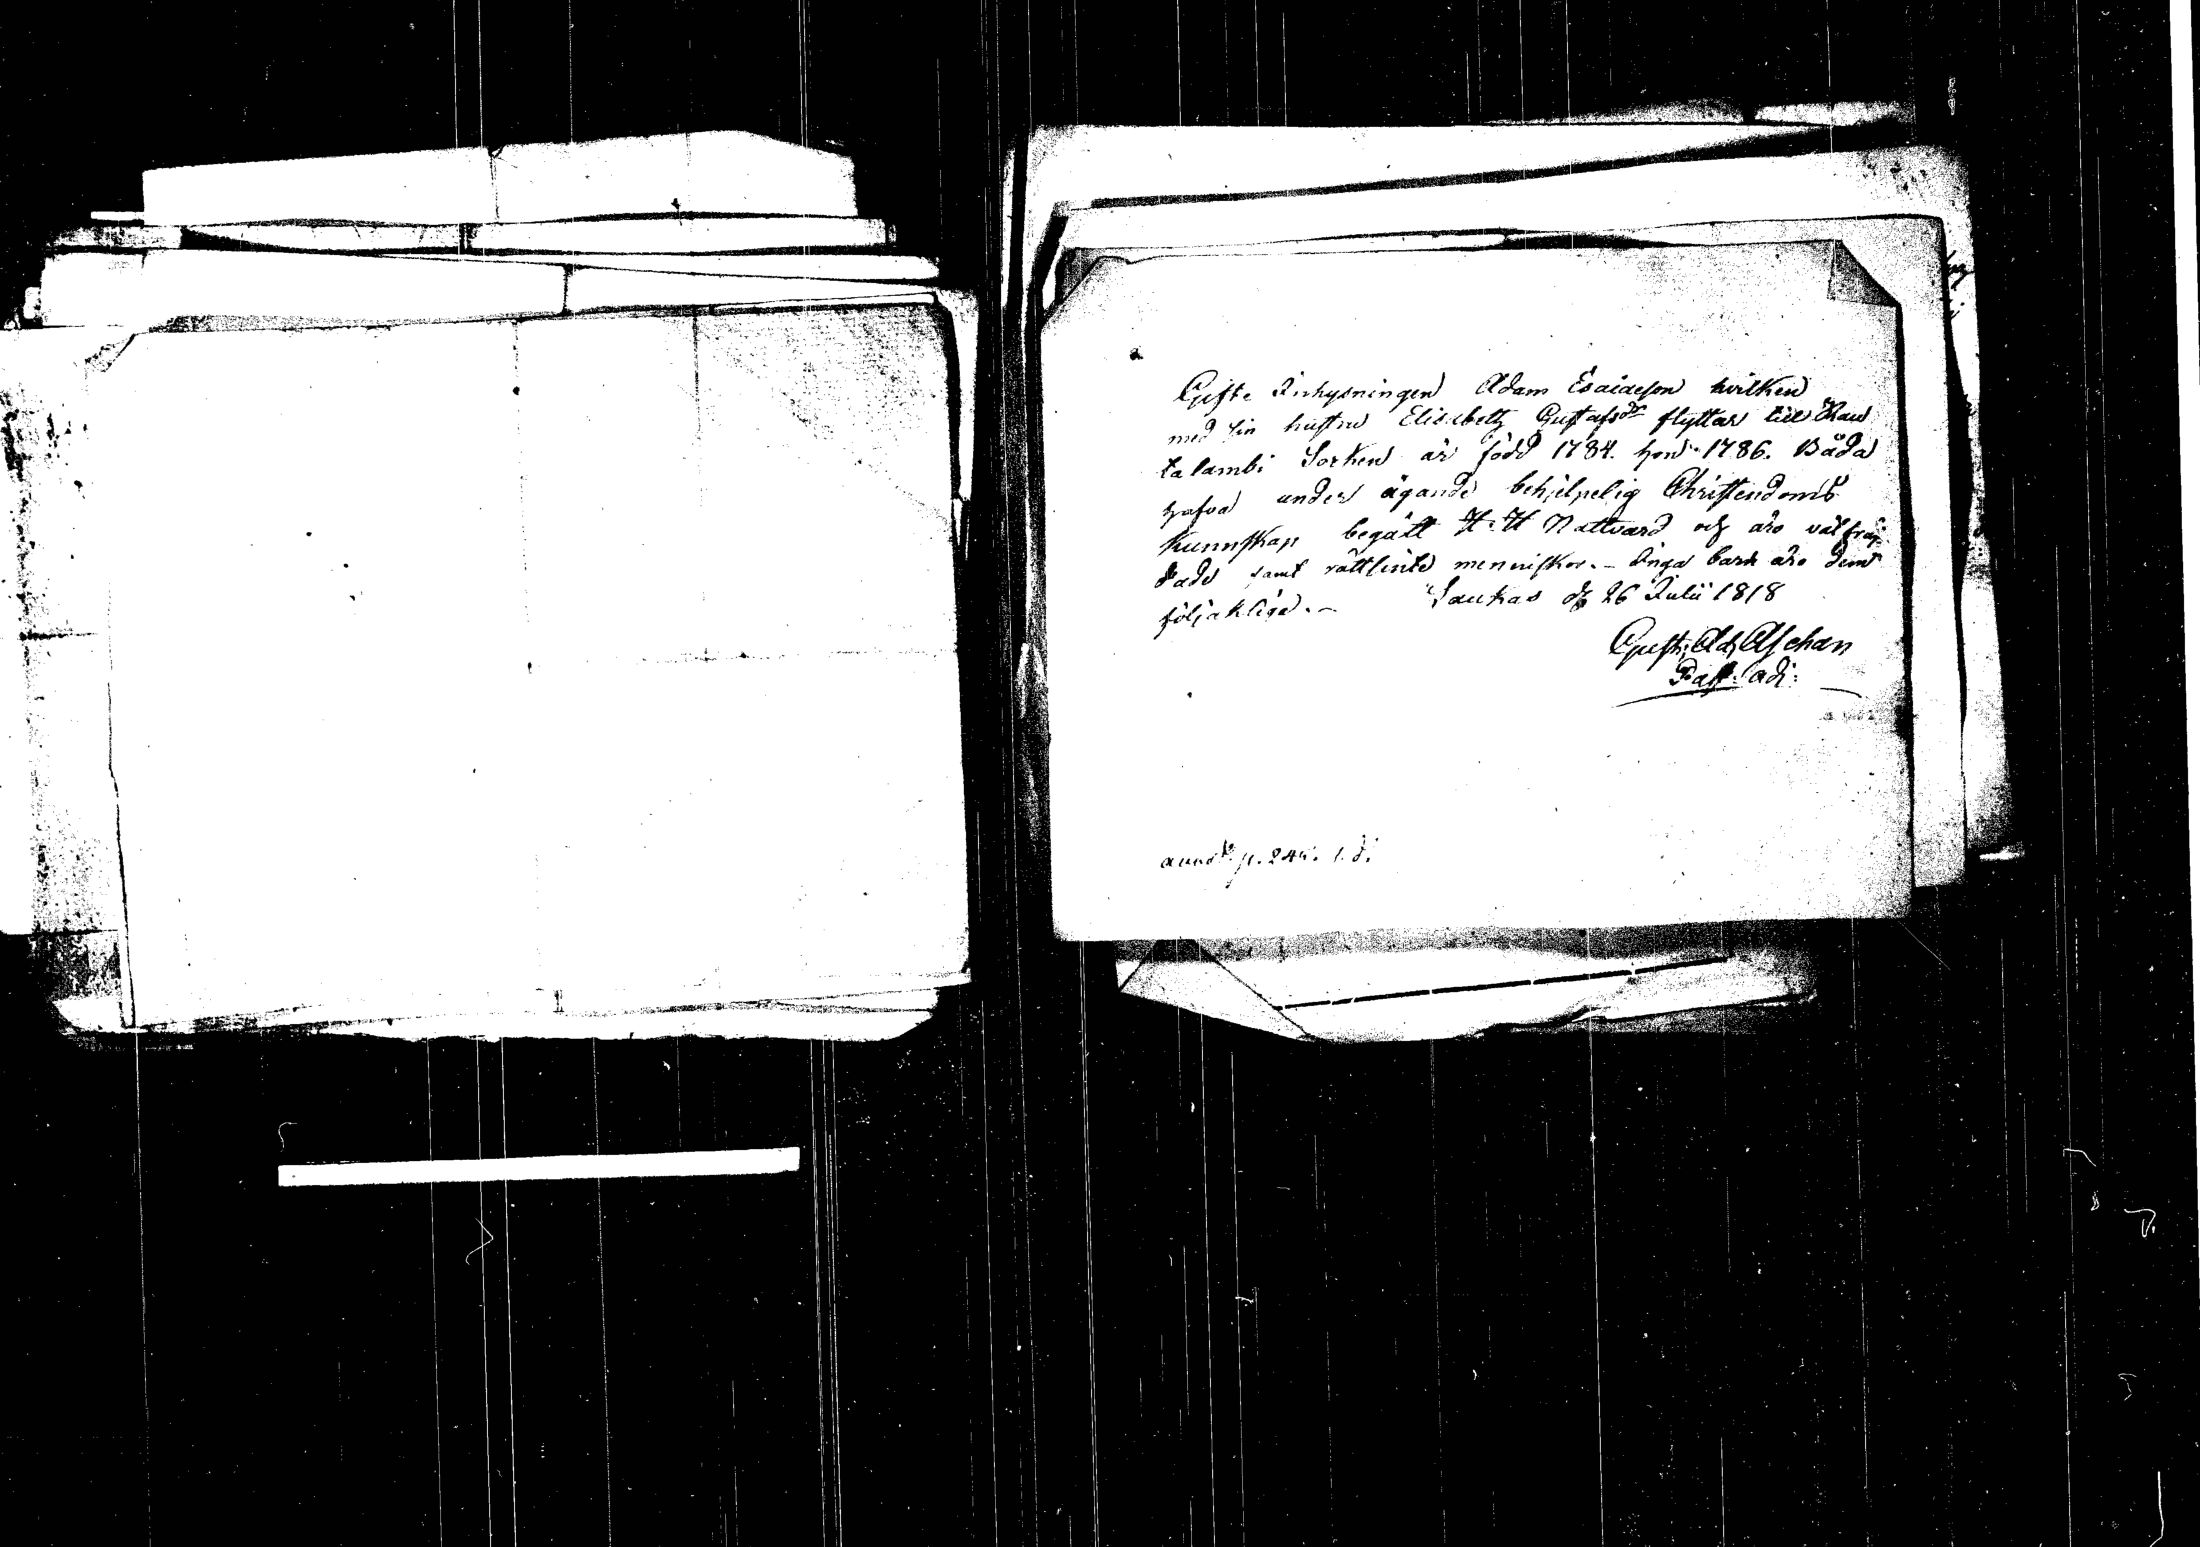 Gifte Inhysningen Adam Esaiaeson hvilken
med sin hustru Elisabeth Gustafsdr flyttar till Rau
talambi Sorken är född 1784. hon 1786. Båda
hafva under ägande behjelpelig Christendoms
kunnskap begått H. H Nattvard och äro välfräj-
dade samt rättsinte menniskor. - Inga barn äro dem
följaktliga. - Laukas d 26 Julii 1818
Gust: Ad, Aschan
Past: adj:
p. 245. 1. d.